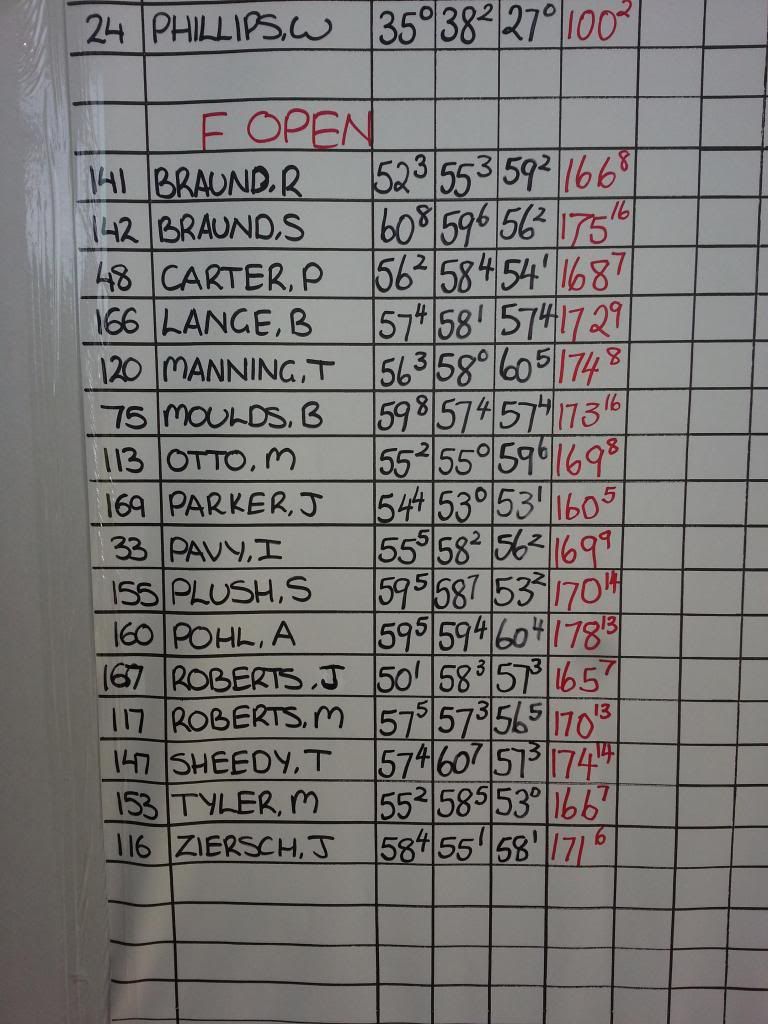 24 PHILLIPS, W 35⁰ 38² 27⁰ 100²
F OPEN
141 BRAUND, R 52³ 55³ 59² 166⁸
142 BRAUND, S 60⁸ 59⁶ 56² 175¹⁶
48 CARTER, P 56² 58⁴ 54¹ 168⁷
166 LANGE, B 57⁴ 58¹ 57⁴ 172⁹
120 MANNING, T 56³ 58⁰ 60⁵ 174⁸
75 MOULDS, B 59⁸ 57⁴ 57⁴ 173¹⁶
113 OTTO, M 55² 55⁰ 59⁶ 169⁸
169 PARKER, J 54⁴ 53⁰ 53¹ 160⁵
33 PAVY, I 55⁵ 58² 56² 169⁹
155 PLUSH, S 59⁵ 58⁷ 53² 170¹⁴
160 POHL, A 59⁵ 59⁴ 60⁴ 178¹³
167 ROBERTS, J 50¹ 58³ 57³ 165⁷
117 ROBERTS, M 57⁵ 57³ 56⁵ 170¹³
147 SHEEDY, T 57⁴ 60⁷ 57³ 174¹⁴
153 TYLER, M 55² 58⁵ 53⁰ 166⁷
116 ZIERSCH, J 58⁴ 55¹ 58¹ 171⁶